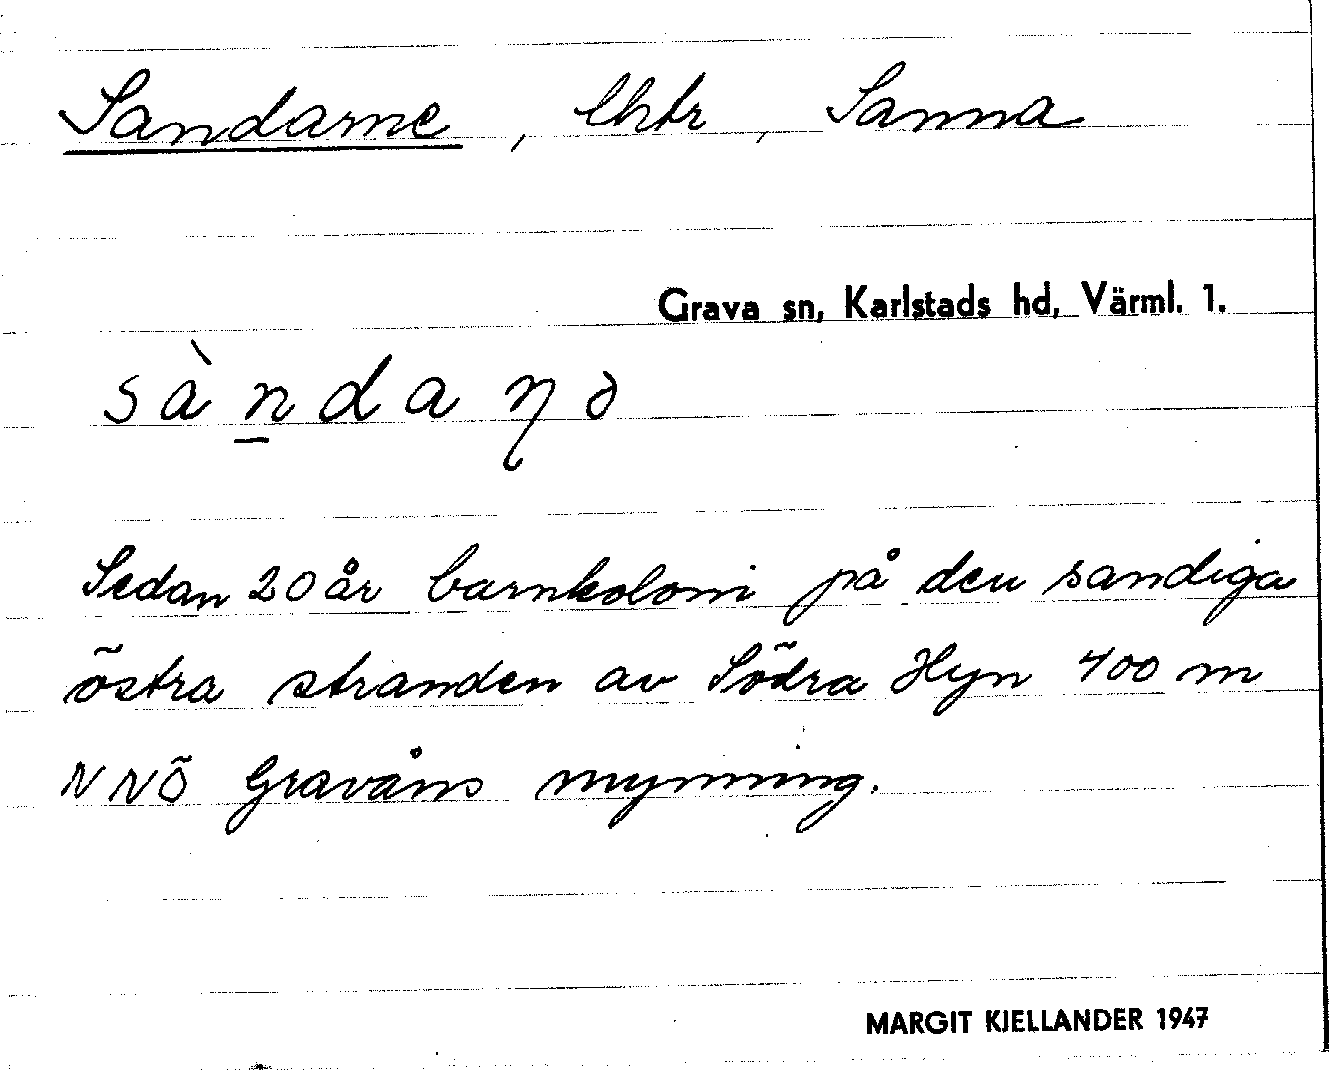 Sandarne, lhtr, Sanna
Grava sn, Karlstads hd, Värml. 1.
sàn̲daṇə
Sedan 20 år barnkoloni på den sandiga
östra stranden av Södra Hyn 400 m
NNÖ Gravåns mynning.
MARGIT KJELLANDER 1947